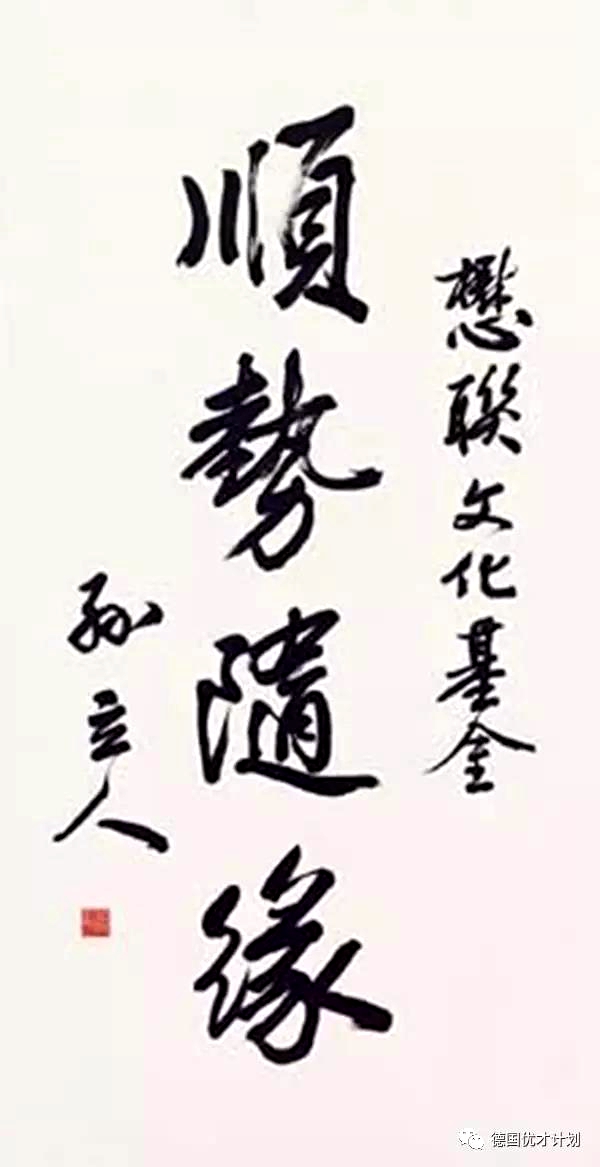 懋聯文化基金
順勢隨緣
孙立人
德国优才计划